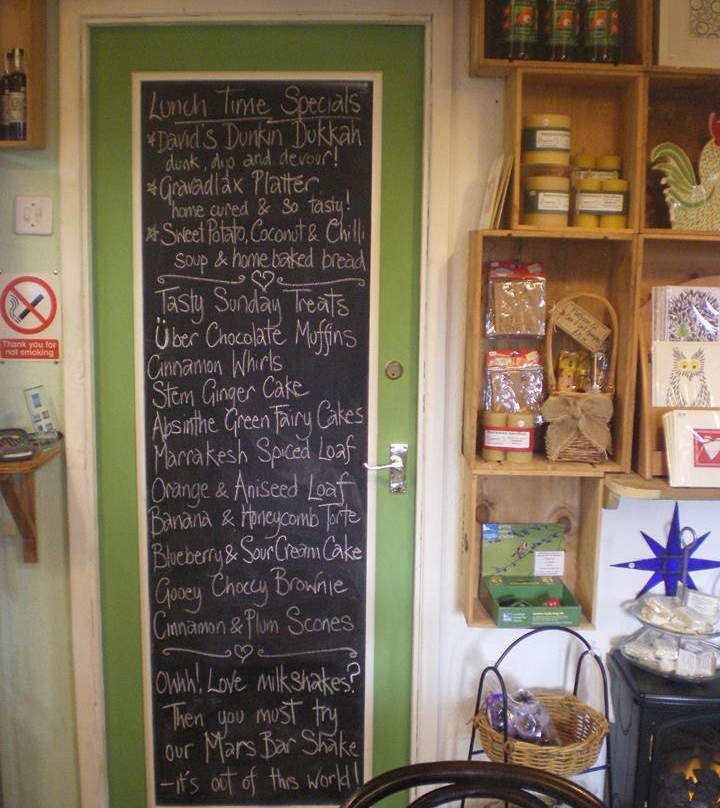 Lunch Time Specials
* David's Dunkin Dukkah
dunk, dip and devour!
* Gravadlax Platter
home cured & so tasty!
* Sweet Potato, Coconut & Chilli
soup & home baked bread
Tasty Sunday Treats
Über Chocolate Muffins
Cinnamon Whirls
Stem Ginger Cake
Absinthe Green Fairy Cakes
Marrakesh Spiced Loaf
Orange & Aniseed Loaf
Banana & Honeycomb Torte
Blueberry & Sour Cream Cake
Gooey Choccy Brownie
Cinnamon & Plum Scones
Owhh! Love milkshakes?
Then you must try
our Mars Bar Shake
– it's out of this world!
Thank you for
not smoking